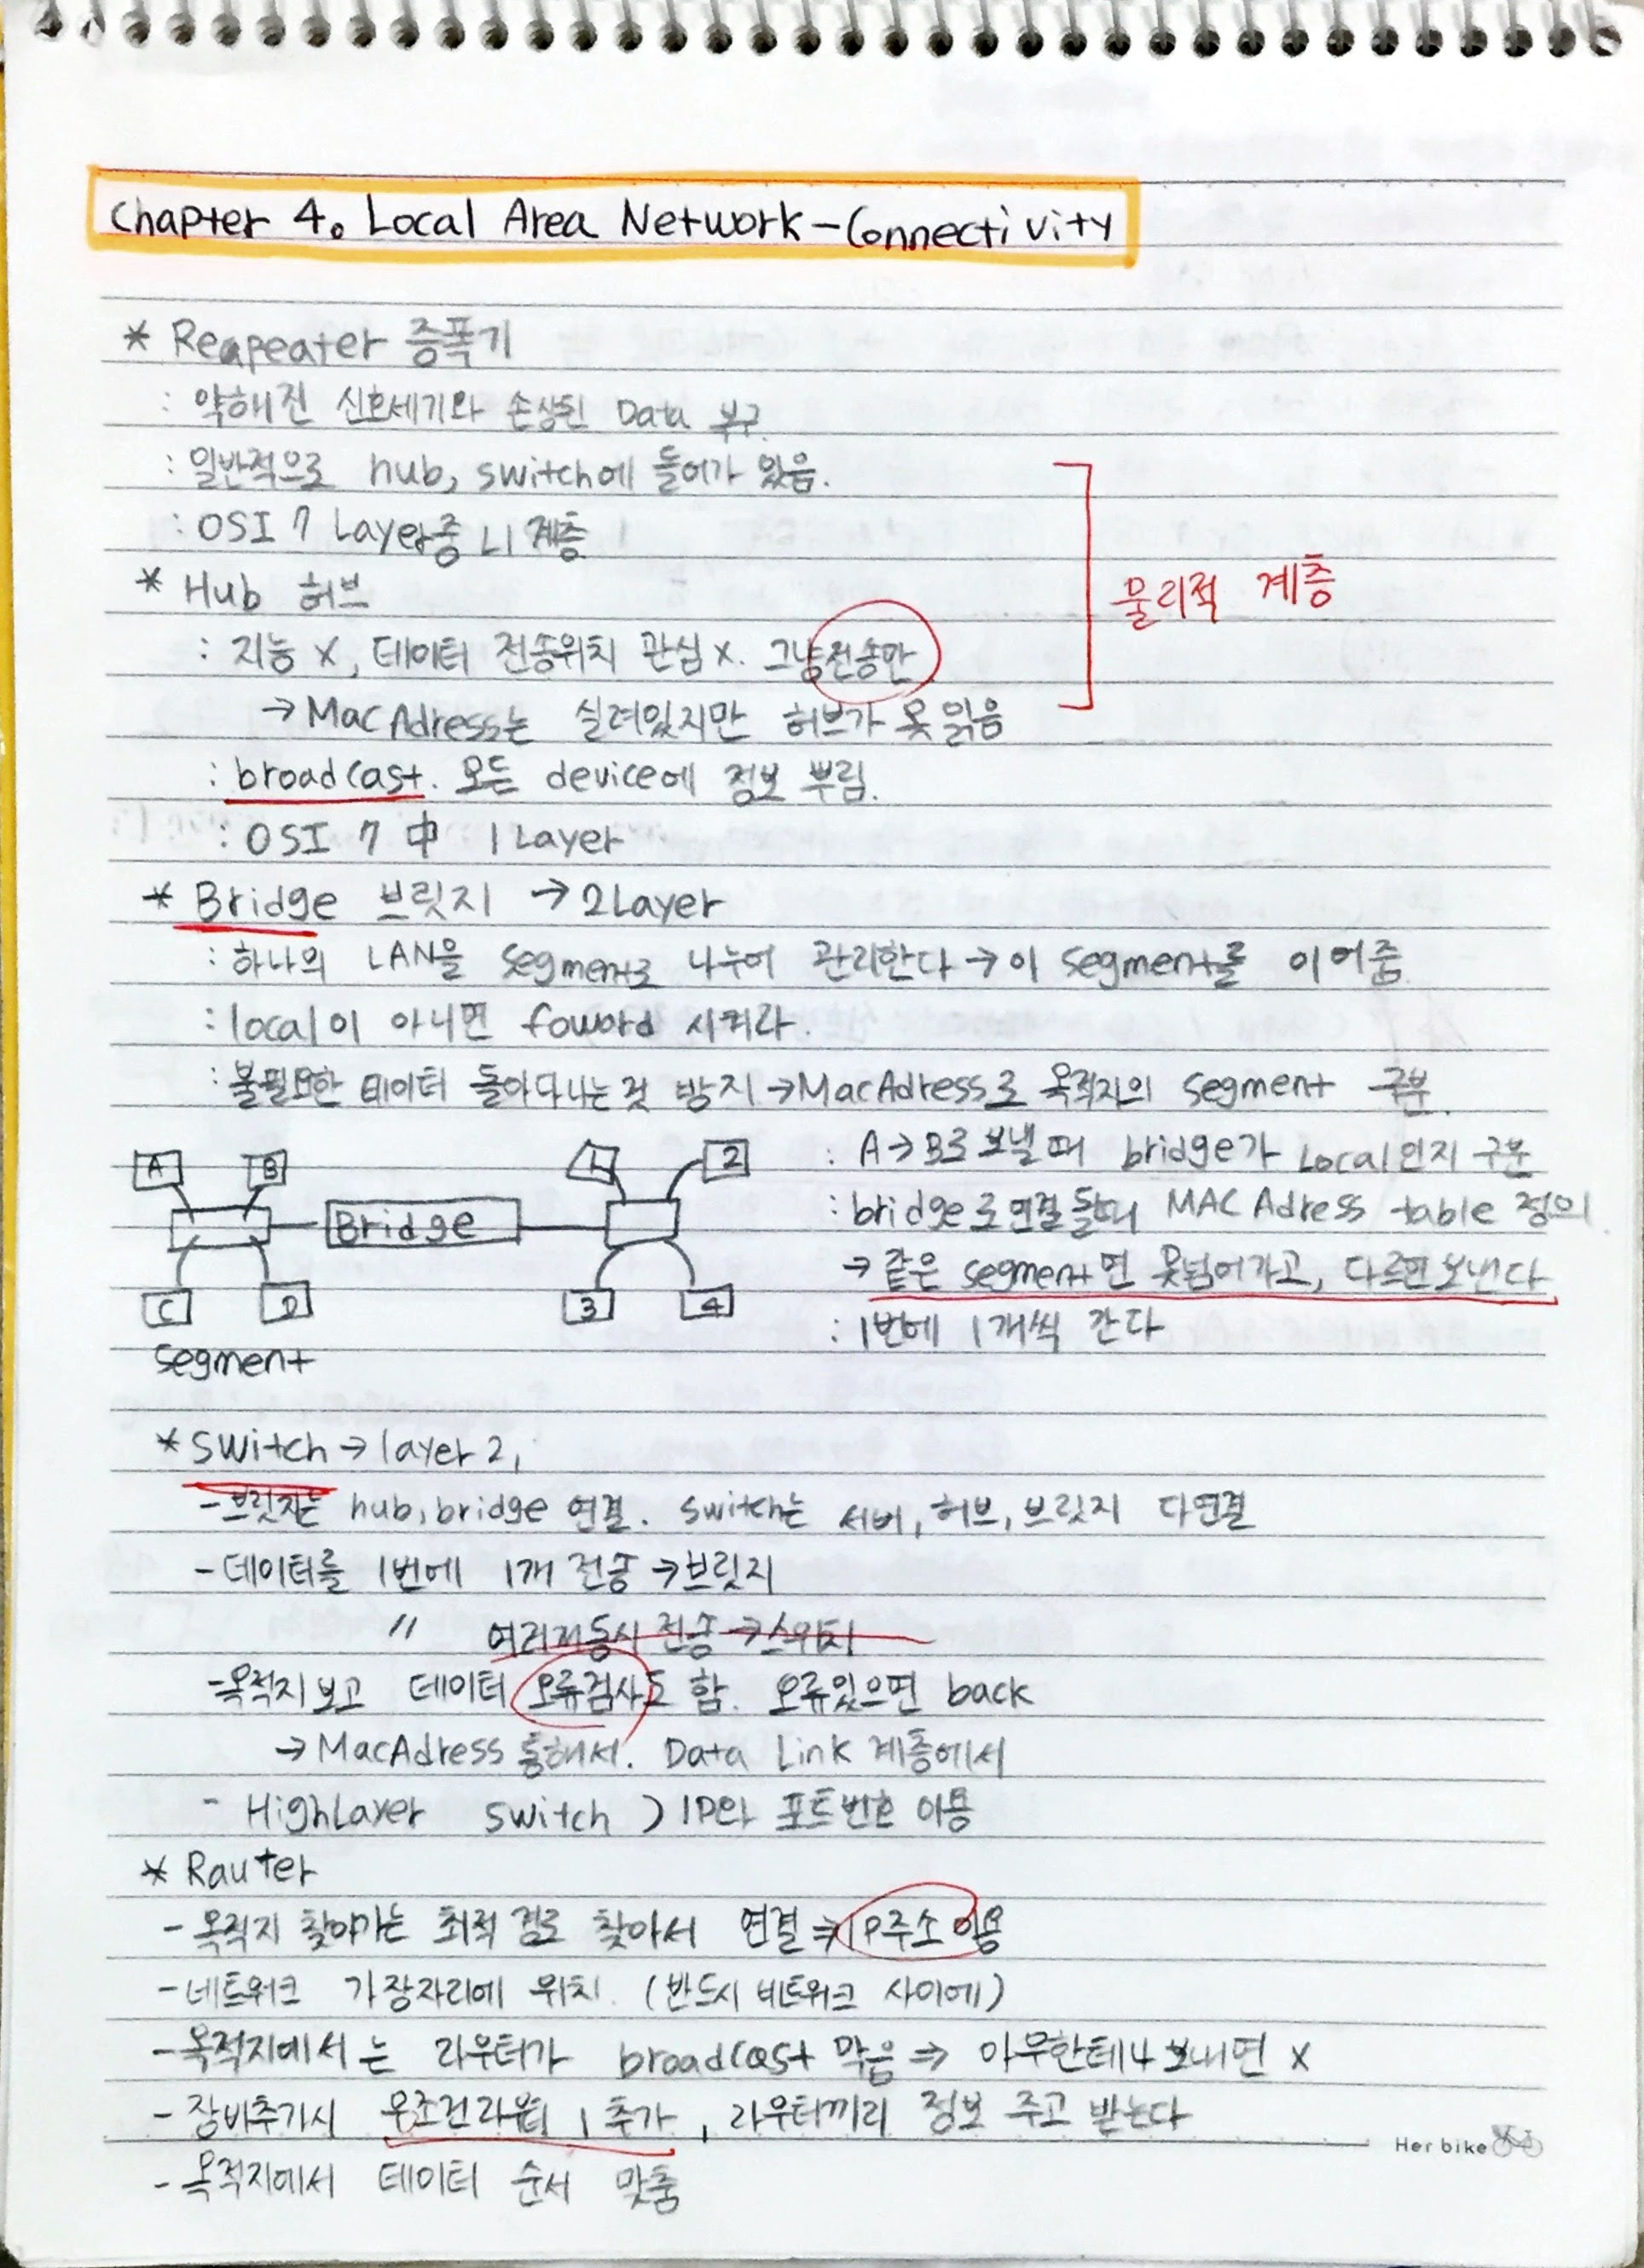 Chapter 4. Local Area Network-Connectivity
* Reapeater 증폭기
: 약해진 신호세기와 손상된 Data 복구.
: 일반적으로 hub, switch에 들어가 있음.
: OSI 7 Layer중 L1 계층
물리적 계층
* Hub 허브
: 지능 X, 데이터 전송위치 관심 X. 그냥 전송만
→ Mac Adress는 실려있지만 허브가 못 읽음
: broadcast. 모든 device에 정보 뿌림.
: OSI 7 中 1 Layer
* Bridge 브릿지 → 2Layer
: 하나의 LAN을 segment로 나누어 관리한다 → 이 segment를 이어줌
: local이 아니면 foword 시켜라.
: 불필요한 데이터 돌아다니는것 방지 → MacAdress로 목적지의 segment 구분.
A B 1 2
Bridge
C D 3 4
segment
: A → B로 보낼때 bridge가 Local인지 구분
: bridge로 연결될때 MAC Adress table 정의
→ 같은 segment면 못넘어가고, 다르면 보낸다
: 1번에 1개씩 간다
* switch → layer 2,
- 브릿지는 hub, bridge 연결. switch는 서버, 허브, 브릿지 다연결
- 데이터를 1번에 1개 전송 → 브릿지
〃 여러개동시 전송 → 스위치
- 목적지보고 데이터 오류검사도 함. 오류있으면 back
→ MacAdress 통해서. Data Link 계층에서
- HighLayer switch ) IP와 포트번호 이용
* Rauter
- 목적지 찾아가는 최적 경로 찾아서 연결 ⇒ IP주소 이용
- 네트워크 가장자리에 위치. (반드시 네트워크 사이에)
- 목적지에서는 라우터가 broadcast 막음 ⇒ 아무한테나 보내면 X
- 장비추가시 무조건라우터 1 추가, 라우터끼리 정보 주고 받는다
Her bike
- 목적지에서 데이터 순서 맞춤